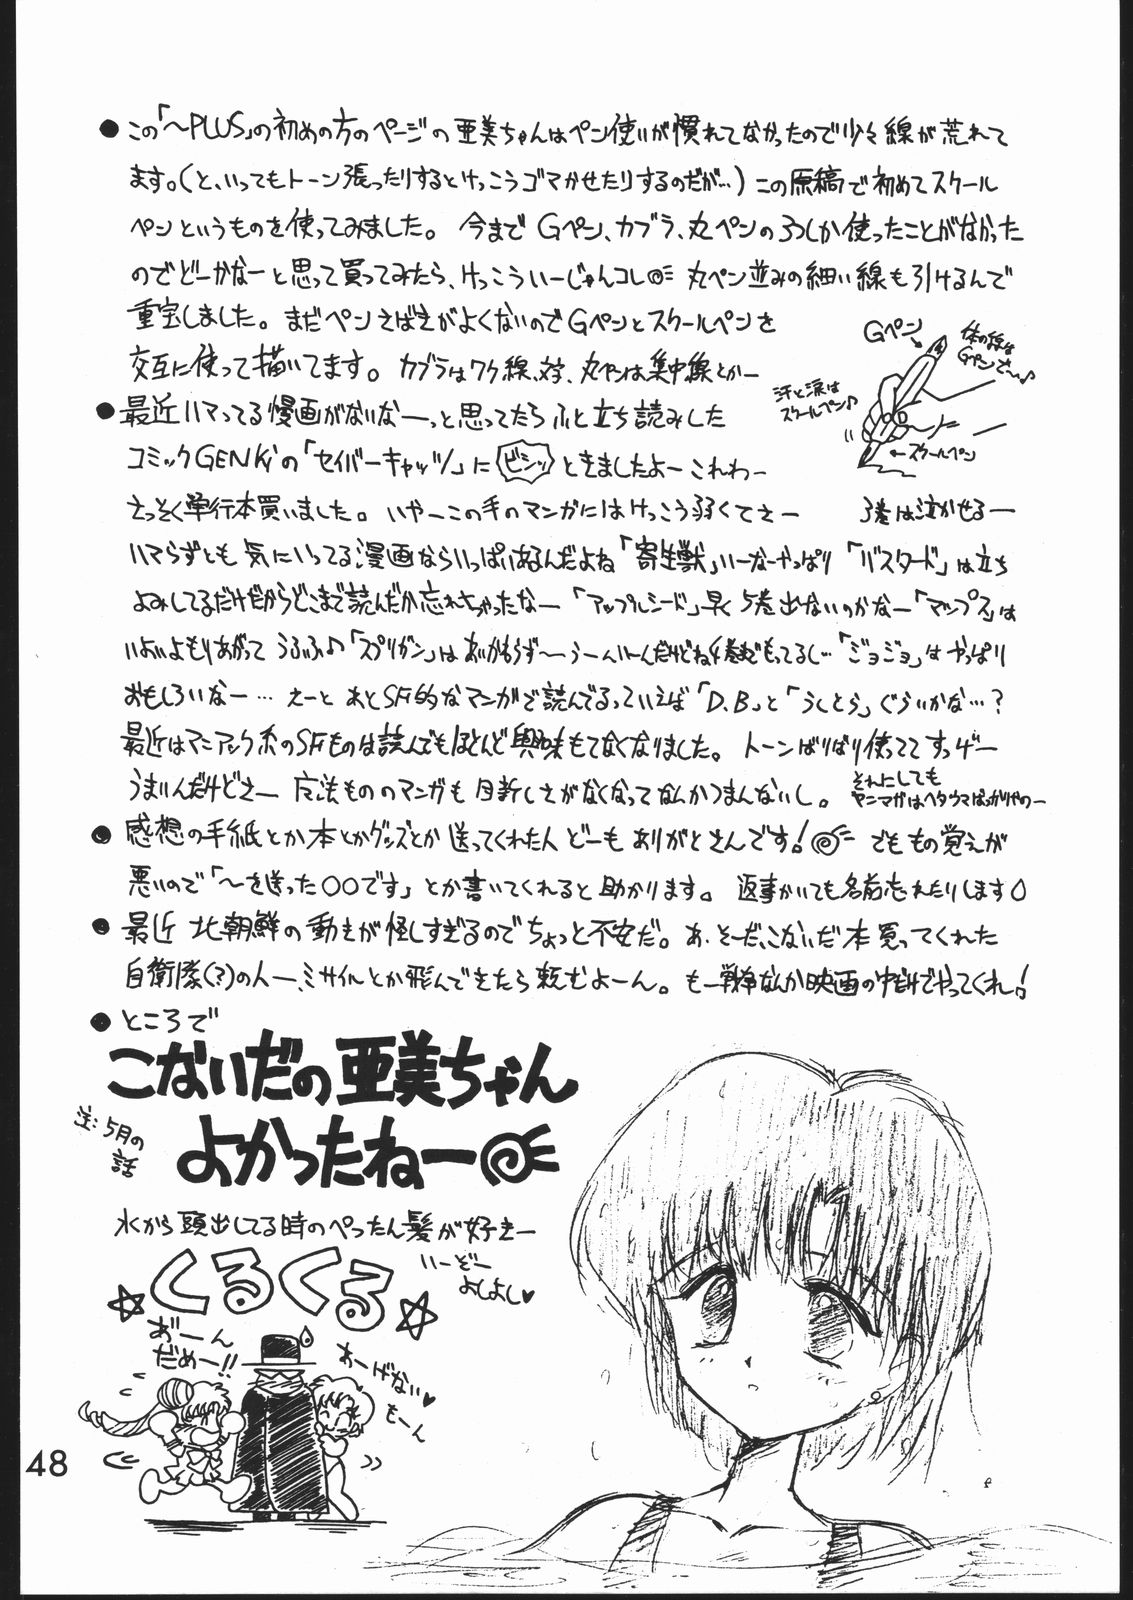 ●この「〜PLUS」の初めの方のページの亜美ちゃんはペン使いが慣れてなかったので少々線が荒れて
ます。(と、いってもトーン張ったりするとけっこうゴマかせたりするのだが…)この原稿で初めてスクール
ペンというものを使ってみました。今までGペン、カブラ、丸ペンの3つしか使ったことがなかった
のでどーかなーと思って買ってみたら、けっこういーじゃんコレ 丸ペン並みの細い線も引けるんで
重宝しました。まだペンさばきがよくないのでGペンとスクールペンを
交互に使って描いてます。カブラはワク線、文字、丸ペンは集中線とかー
Gペン
体の線は
Gペンでぃ〜♪
汗と涙は
スクールペン♪
←スクールペン
●最近ハマってる漫画がないなーっと思ってたらふと立ち読みした
コミックGENKiの「セイバーキャッツ」にビシッときましたよーこれわー
さっそく単行本買いました。いやーこの手のマンガにはけっこう弱くてさー 3巻は泣かせるー
ハマらずとも気にいってる漫画ならいっぱいあるんだよね「寄生獣」いーなーやっぱり「バスタード」は立ち
よみしてるだけだからどこまで読んだか忘れちゃったなー「アップルシード」早く5巻出ないのかなー「マップス」は
いよいよもりあがって うふふ♪「スプリガン」はあいかわらず〜うーんいーんだけどね 巻までもってるし…「ジョジョ」はやっぱり
おもしろいなー… えーと あとSF的なマンガで読んでるっていえば「D.B」と「うしとら」ぐらいかな…?
最近はマニアック系のSFものは読んでもほとんど興味もてなくなりました。トーンばりばり使っててすっげー
うまいんだけどさー 魔法もののマンガも目新しさがなくなってなんかつまんないし。
それにしても
ヤンマガはヘタウマばっかりやのー
●感想の手紙とか本とかグッズとか送ってくれた人どーもありがとさんです! でももの覚えが
悪いので「〜を送った○○です」とか書いてくれると助かります。返事かいても名前忘れたりします
●最近 北朝鮮の動きが怪しすぎるのでちょっと不安だ。あ、そーだ、こないだ本買ってくれた
自衛隊(?)の人ー、ミサイルとか飛んできたら頼むよーん。もー戦争なんか映画の中だけでやってくれ!
●ところで
こないだの亜美ちゃん
よかったねー
注:5月の
話
水から頭出してる時のぺったん髪が好きー
いーぞー
よしよし♥
☆くるくる☆
あ゛ーん
だめー!!
あーげない♥
もーん
48